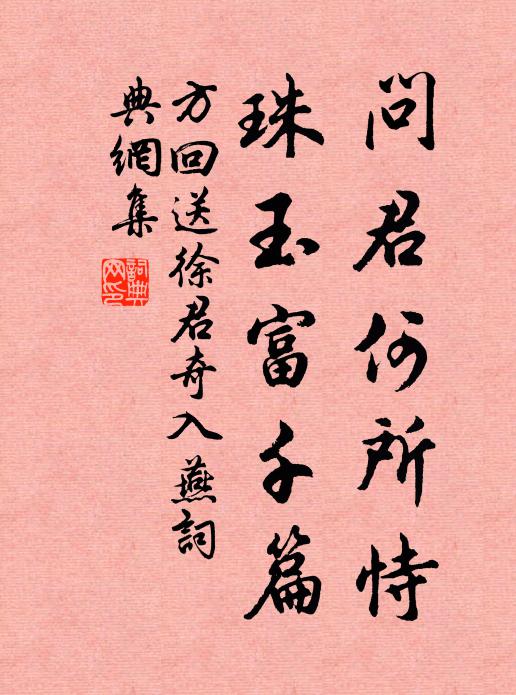 問君何所恃
珠玉富千篇
方回送徐君奇入燕詞
典網集
詞典
网印